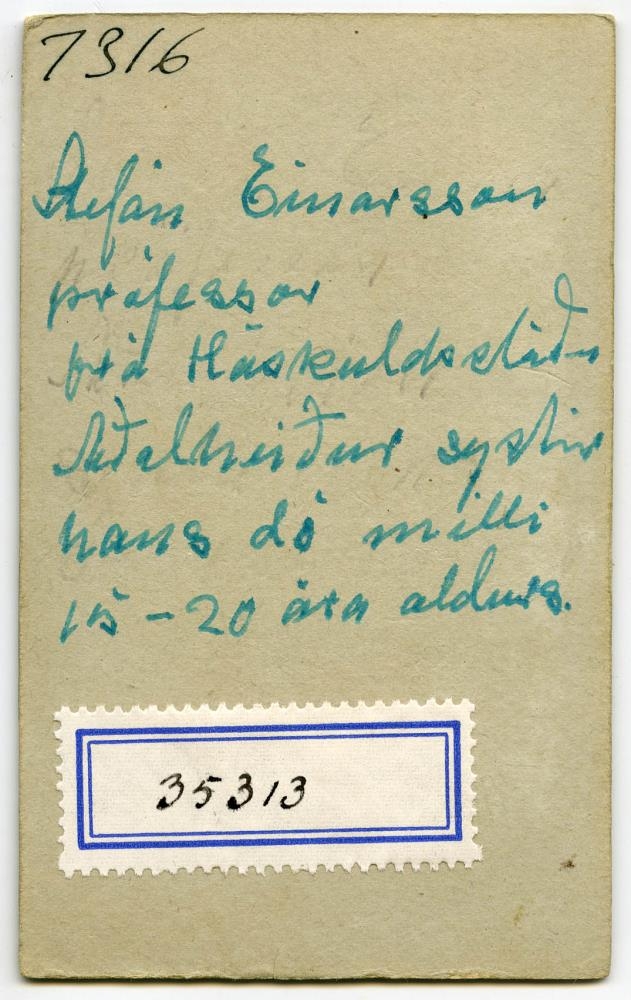 7316
Stefán Einarsson
prófessor
frá Höskuldsstöðu
Aðalheiður systir
hans dó milli
15-20 ára aldurs.
35313